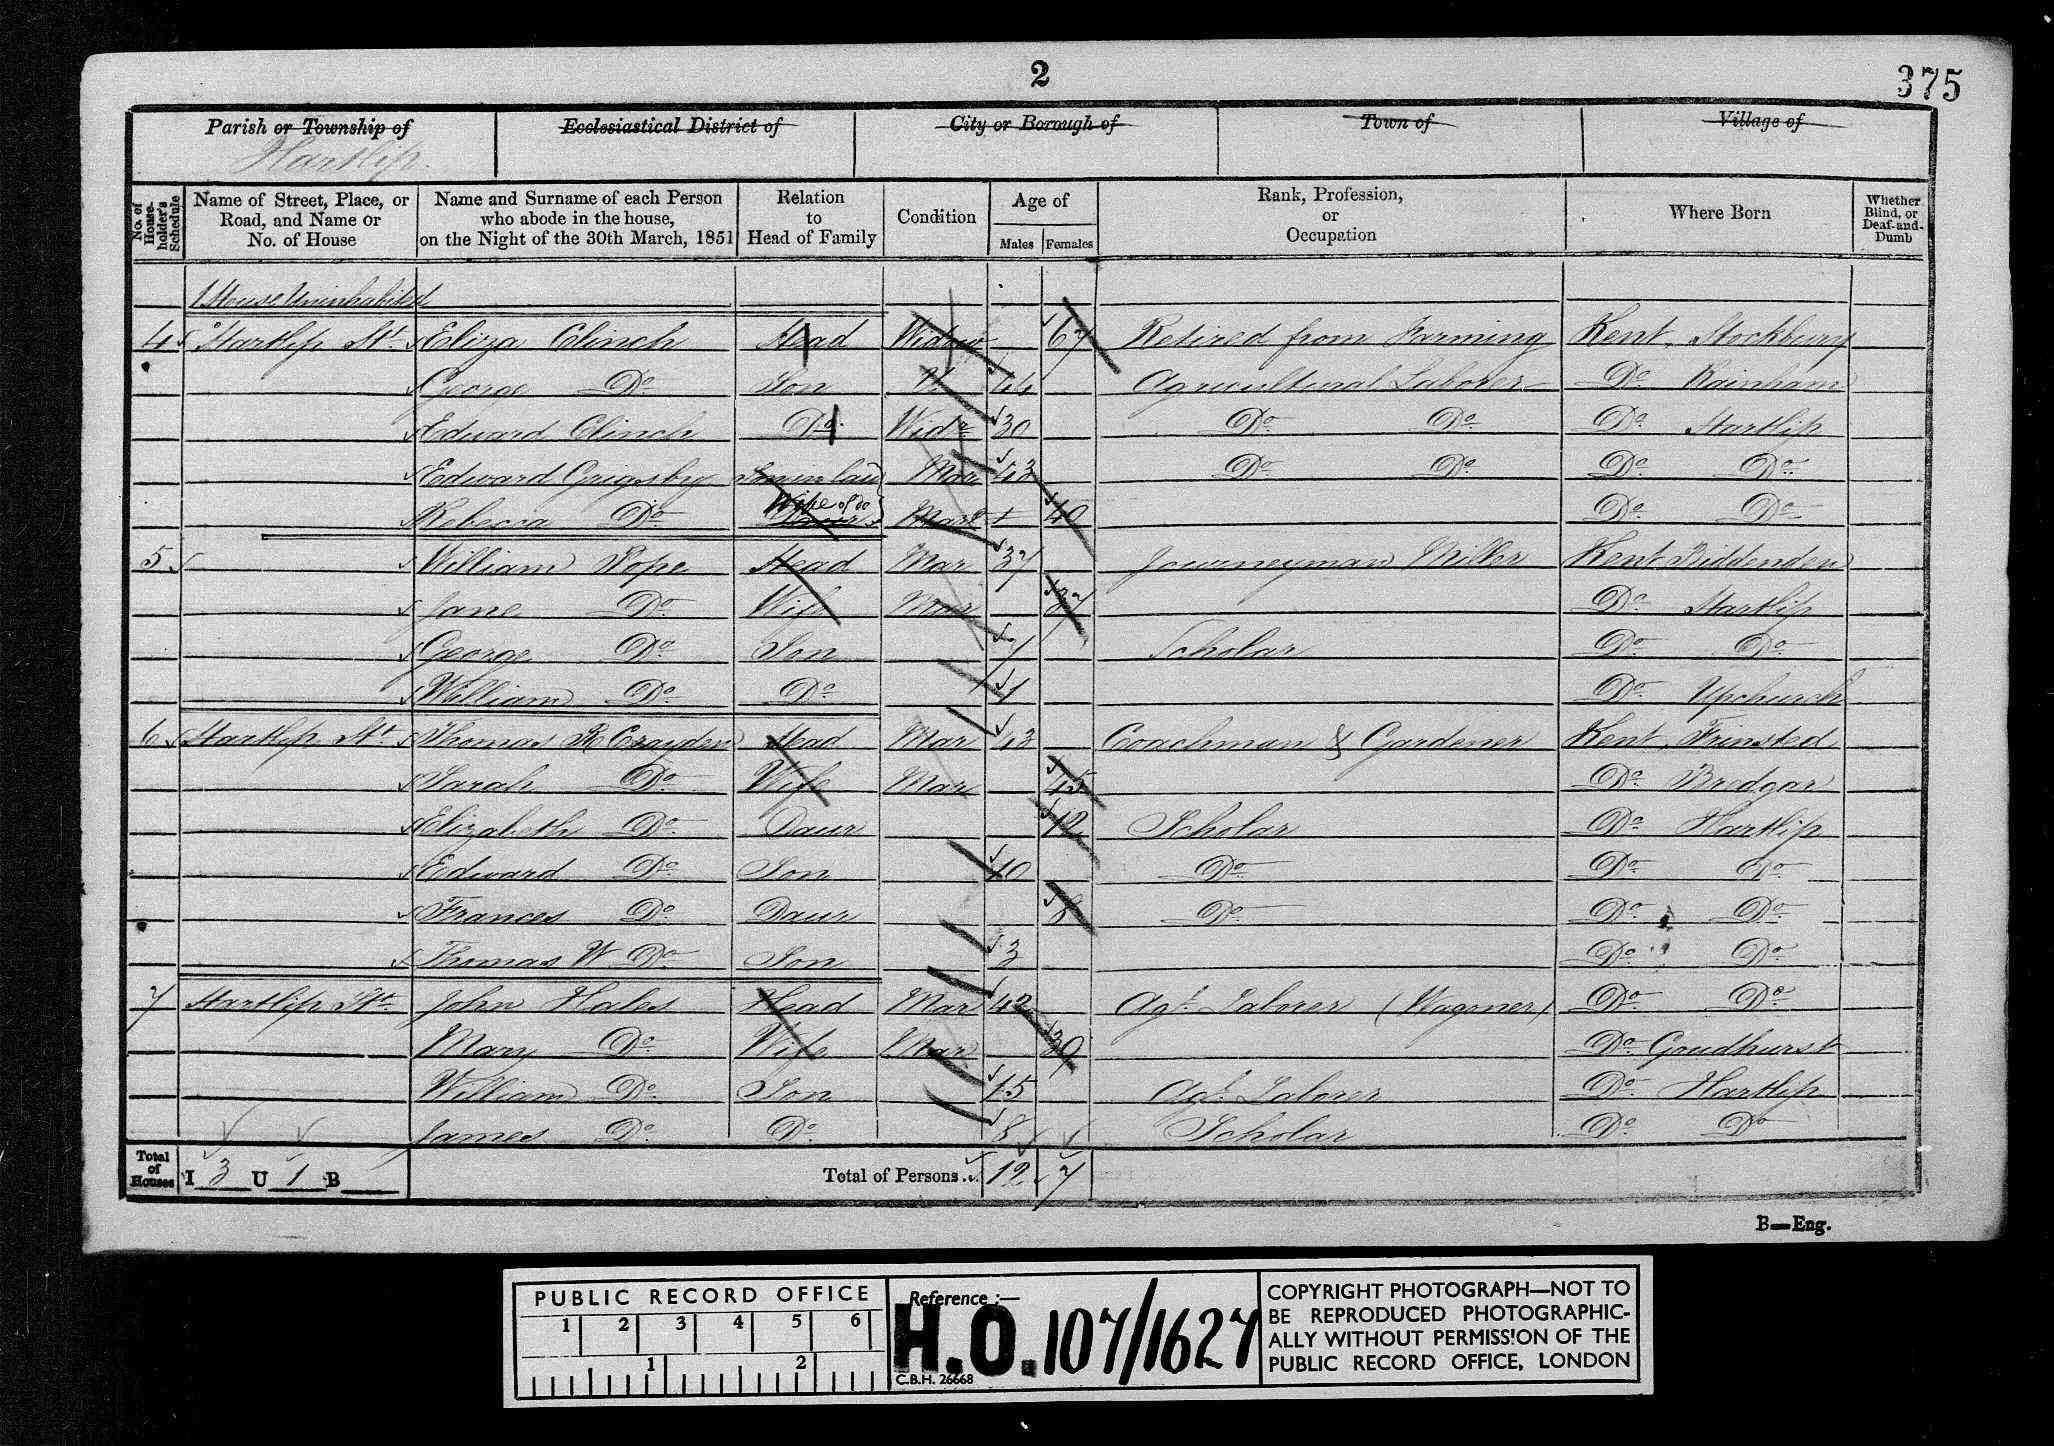 2
375
Parish or Township of Ecclesiastical District of City or Borough of Town of Village of
Hartlip
No. of House-holder's Schedule
Name of Street, Place, or Road, and Name or No. of House
Name and Surname of each Person who abode in the house, on the Night of the 30th March, 1851
Relation to Head of Family
Condition
Age of
Males Females
Rank, Profession, or Occupation
Where Born
Whether Blind, or Deaf-and-Dumb
1 House Uninhabited
4 Hartlip St. Eliza Clinch Head Widow 67 Retired from Farming Kent Stockbury
George Do Son U 44 Agricultural Laborer Do Rainham
Edward Clinch Do Widr 30 Do Do Do Hartlip
Edward Grigsby Son in law Mar 43 Do Do Do Do
Wife of do
Rebecca Do Daur Mar 40 Do Do
5 William Pope Head Mar 37 Journeyman Miller Kent Biddenden
Jane Do Wife Mar 37 Do Hartlip
George Do Son 7 Scholar Do Do
William Do Do 1 Do Upchurch
6 Hartlip St. Thomas R Crayden Head Mar 43 Coachman & Gardener Kent Frinsted
Sarah Do Wife Mar 45 Do Bredgar
Elizabeth Do Daur 12 Scholar Do Hartlip
Edward Do Son 10 Do Do Do
Frances Do Daur 8 Do Do Do
Thomas W Do Son 3 Do Do
7 Hartlip St. John Hales Head Mar 42 Agl. Laborer (Wagoner) Do Do
Mary Do Wife Mar 39 Do Goudhurst
William Do Son 15 Agl. Laborer Do Hartlip
James Do Do 8 Scholar Do Do
Total of Houses I 3 U 1 B Total of Persons 12 7
B—Eng.
PUBLIC RECORD OFFICE
1 2 3 4 5 6
1 2
Reference :—
H.O. 107/1627
C.B.H. 26668
COPYRIGHT PHOTOGRAPH—NOT TO
BE REPRODUCED PHOTOGRAPHIC-
ALLY WITHOUT PERMISSION OF THE
PUBLIC RECORD OFFICE, LONDON